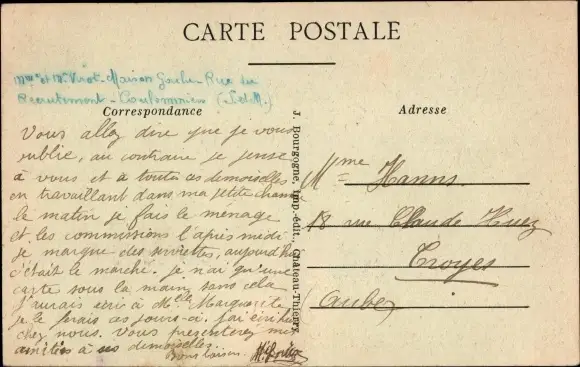 CARTE POSTALE
Mme et Mr Virot-Maison Rue du
Recrutement-Coulommiers (S.et M.)
Correspondance
Adresse
Vous allez dire que je vous
oublie, au contraire je pense
à vous et à toutes ces demoiselles
en travaillant dans ma petite chambre
le matin je fais le ménage
et les commissions l'après midi
je marque des serviettes, aujourd'hui
c'était le marché. je n'ai qu'une
carte sous la main, sans cela
j'aurais écrit à Melle Marguerite
je le ferais ces jours-ci. j'ai écrit hier
chez nous. Vous présenterez mes
amitiés à ces demoiselles.
Bons baisers.
J. Bourgogne, Imp.-édit. Château-Thierry
Mme Hanns
18 rue Claude Huez
Troyes
(Aube)